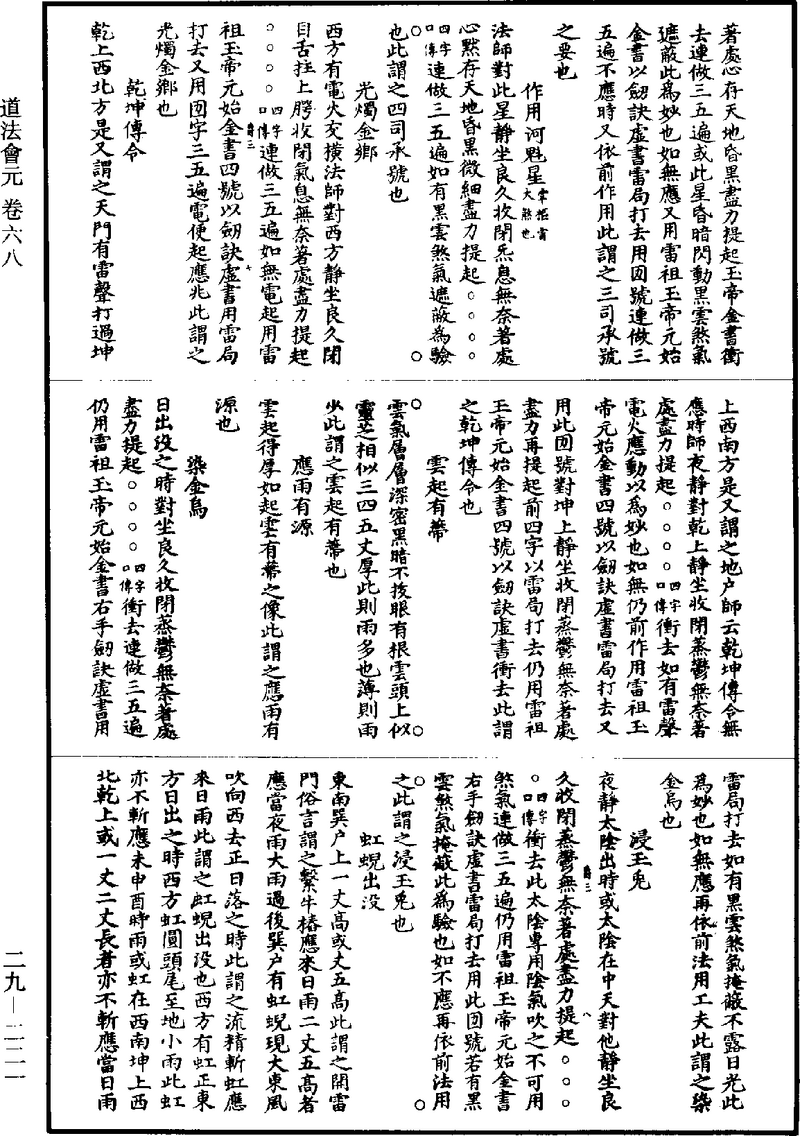 道法會元 卷六八
著處心存天地昏黑盡力提起玉帝金書衝
去連做三五遍或此星昏暗閃動黑雲煞氣
遮蔽此為妙也如無應又用雷祖玉帝元始
金書以劍訣虛書雷局打去用囬號連做三
五遍不應時又依前作用此謂之三司承號
之要也
作用河魁星
法師對此星靜坐良久收閉炁息無奈著處
心黙存天地昏黑微細盡力提起。。。。
四字口傳連做三五遍如有黑雲煞氣遮蔽為驗
也此謂之四司承號也
光燭金鄉
西方有電火交橫法師對西方靜坐良久閉
目舌拄上腭收閉氣息無奈著處盡力提起
。。。。四字口傳連做三五遍如無電起用雷
祖玉帝元始金書四號以劍訣虛書用雷局
打去又用囬字三五遍電便起應兆此謂之
光燭金鄉也
乾坤傳令
乾上西北方是又謂之天門有雷聲打過坤
上西南方是又謂之地户師云乾坤傳令無
應時師夜靜對乾上靜坐收閉蒸鬱無奈著
處盡力提起。。。。四字口傳衝去如有雷聲
電火應動以為妙也如無仍前作用雷祖玉
帝元始金書四號以劍訣虛書雷局打去又
用此囬號對坤上靜坐收閉蒸鬱無奈著處
盡力再提起前四字以雷局打去仍用雷祖
玉帝元始金書四號以劍訣虛書衝去此謂
之乾坤傳令也
雲起有蒂
雲氣層層深密黑暗不拔眼有根雲頭上似
靈芝相似三四五丈厚此則雨多也薄則雨
少此謂之雲起有蒂也
應雨有源
雲起得厚如起雲有蒂之像此謂之應雨有
源也
染金烏
日出没之時對坐良久收閉蒸鬱無奈著處
盡力提起。。。。四字口傳衝去連做三五遍
仍用雷祖玉帝元始金書右手劍訣虛書用
雷局打去如有黑雲煞氣掩蔽不露日光此
為妙也如無應再依前法用工夫此謂之染
金烏也
浸玉兎
夜靜太陰出時或太陰在中天對他靜坐良
久收閉蒸鬱無奈著處盡力提起。。。
。四字口傳衝去此太陰專用陰氣吹之不可用
煞氣連做三五遍仍用雷祖玉帝元始金書
右手劍訣虛書雷局打去用此囬號若有黑
雲煞氣掩蔽此為驗也如不應再依前法用
之此謂之浸玉兎也
虹蜺出没
東南巽户上一丈高或丈五高此謂之開雷
門俗言謂之繫牛樁應來日雨二丈五高者
應當夜雨大雨過後巽户有虹蜺現大東風
吹向西去正日落之時此謂之流精斬虹應
來日雨此謂之虹蜺出没也西方有虹正東
方日出之時西方虹圓頭尾至地小雨此虹
亦不斬應未申酉時雨或虹在西南坤上西
北乾上或一丈二丈長者亦不斬應當日雨
二九—二二一